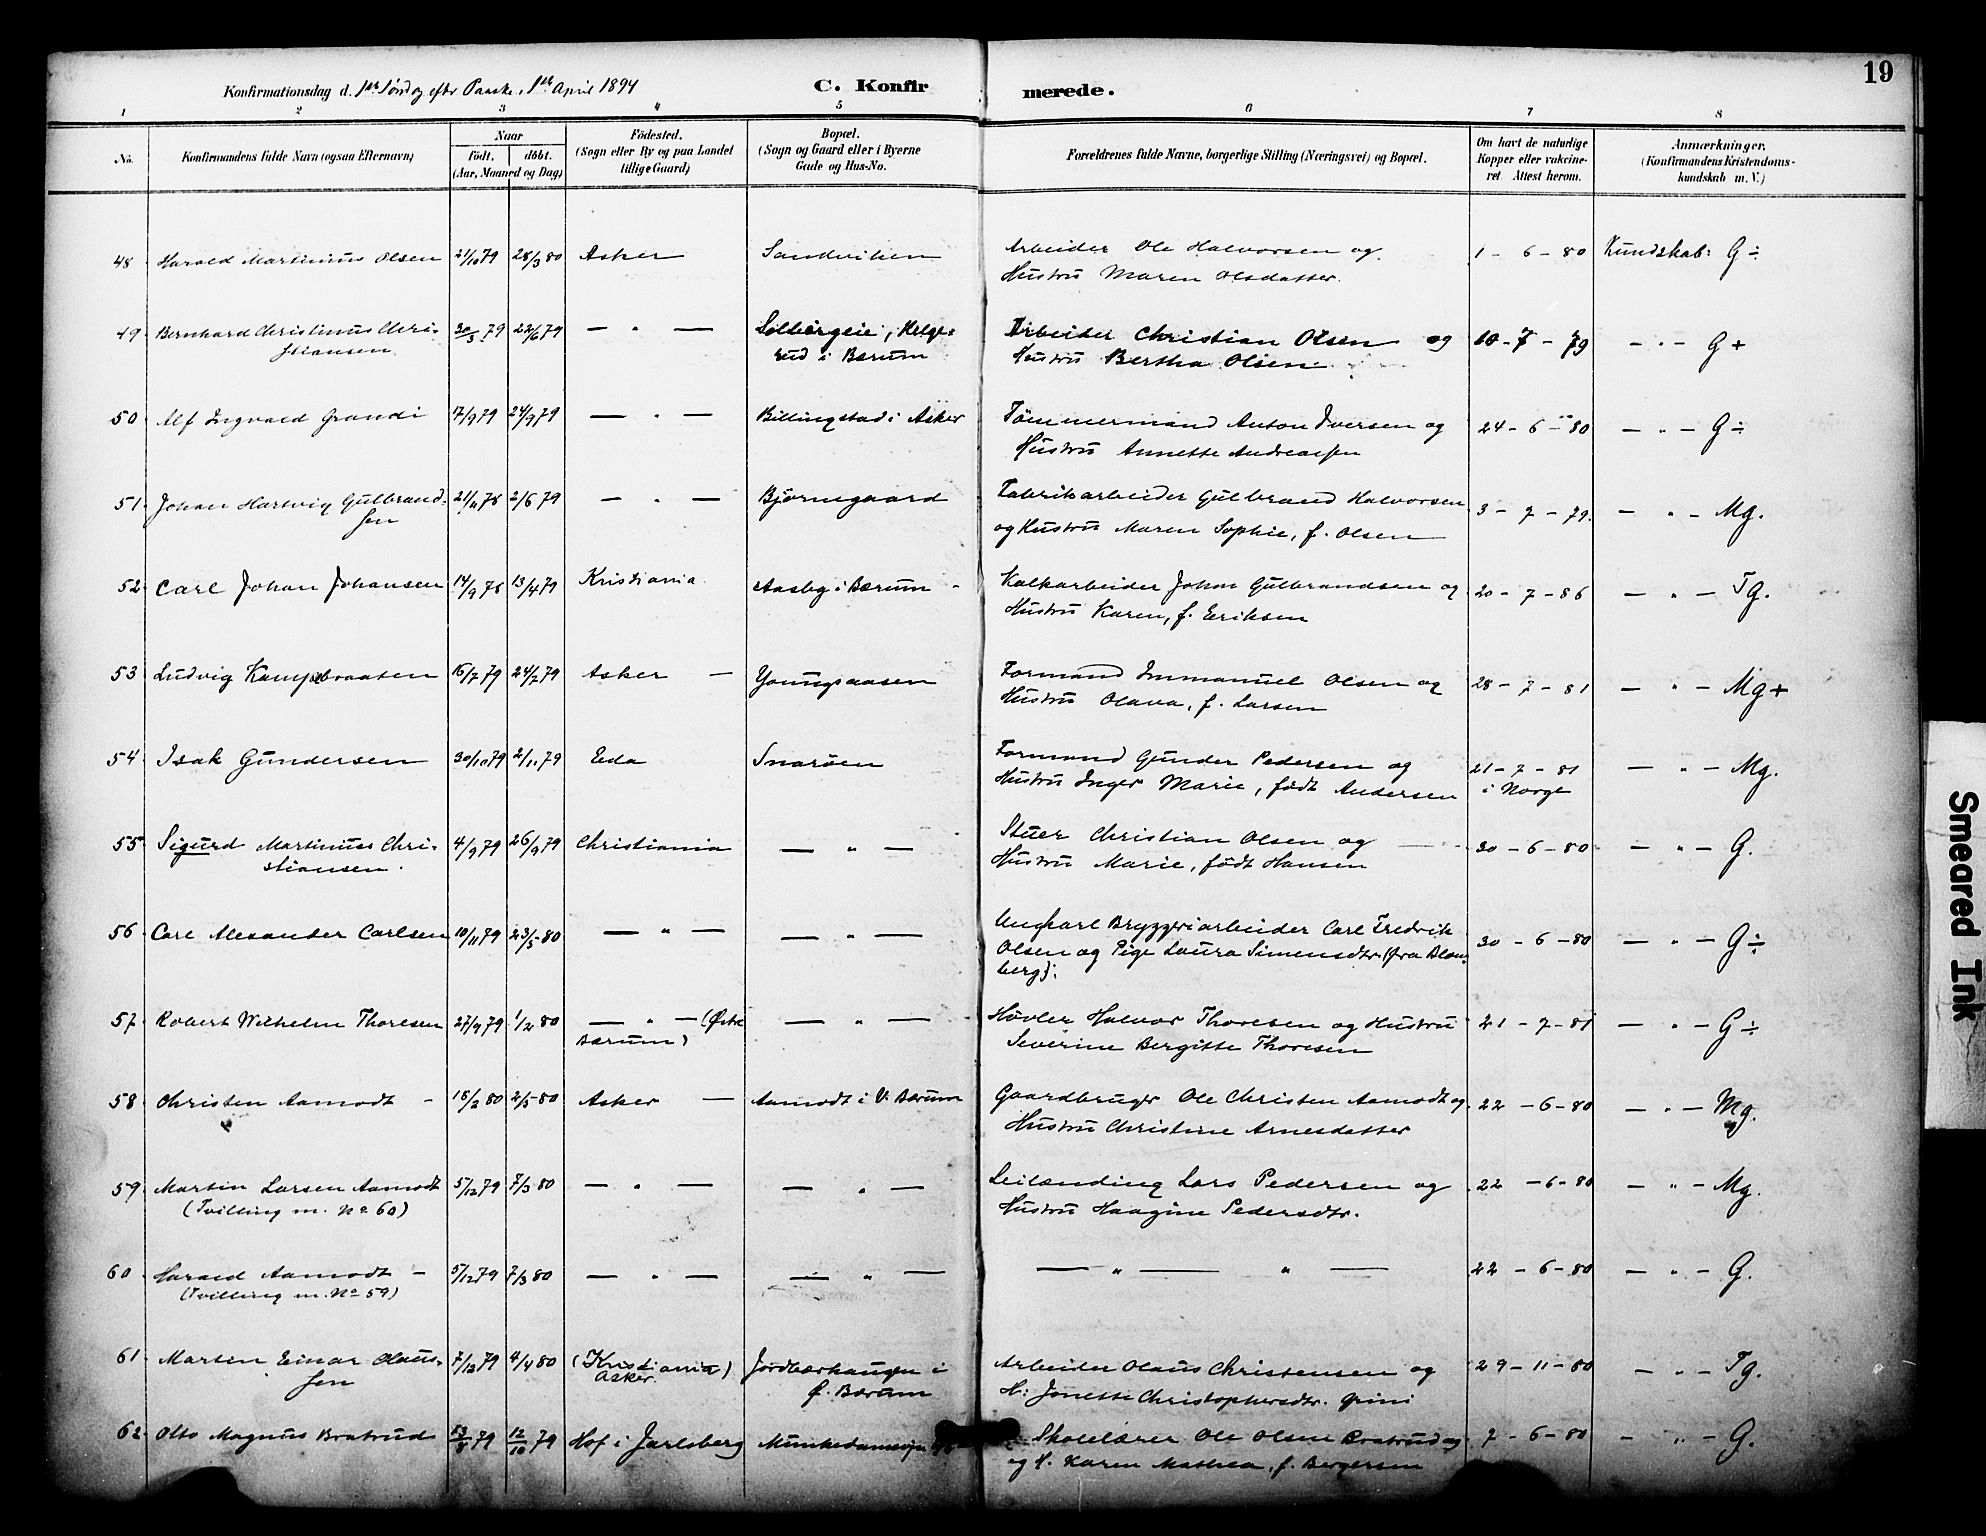 19
Konfirmationsdag d. 1ste Søndag efter Paaske, 1ste April 1894
C. Konfirmerede.
1 2 3 4 5 6 7 8
No. Konfirmandens fulde Navn (ogsaa Efternavn) Naar födt, döbt. (Aar, Maaned og Dag) Födested. (Sogn eller By og paa Landet tillige Gaard) Bopæl. (Sogn og Gaard eller i Byerne Gade og Hus-No. Forældrenes fulde Navne, borgerlige Stilling (Næringsvei) og Bopæl. Om havt de naturlige Kopper eller vakcineret Attest herom. Anmærkninger. (Konfirmandens Kristendomskundskab m. V.)
48 Harald Martinius Olsen 21/10 79 28/3 80 Asker Sandviken Arbeider Ole Halvorsen og 1 - 6 - 80 Kundskab: G÷
Hustru Maren Olsdatter.
49 Bernhard Christinus Chri- 30/3 79 22/6 79 — " — Solbergeie, Helge- Arbeider Christian Olsen og 10 - 7 - 79 — " — G+
stiansen rud i Bærum Hustru Bertha Olsen
50 Alf Ingvald Grandi 17/9 79 24/9 79 — " — Billingstad i Asker Tömmermand Anton Iversen og 24 - 6 - 80 — " — G÷
Hustru Annette Andreassen
51 Johan Hartvig Gulbrand- 21/11 78 2/6 79 — " — Bjørnegaard Fabrikarbeider Gulbrand Halvorsen 3 - 7 - 79. — " — Mg.
sen og Hustru Maren Sophie, f. Olsen
52 Carl Johan Johansen 14/9 78 13/4 79 Kristiania Aasby i Bærum Kalkarbeider Johan Gulbrandsen og 20 - 7 - 86 — " — Tg.
Hustru Karen, f. Eriksen
53 Ludvig Kampebraaten 16/7 79 24/7 79 Asker — Youngsaasen Formand Immanuel Olsen og 28 - 7 - 81 — " — Mg+
Hustru Olava, f. Larsen
54 Isak Gundersen 30/10 79 2/11 79 Eda Snarøen Formand Gunder Pedersen og 21 - 7 - 81 — " — Mg.
Hustru Inger Marie, födt Andersen i Norge
55 Sigurd Martinus Chri- 4/9 79 26/9 79 Christiania — " — Stuer Christian Olsen og 30 - 6 - 80 — " — G.
stiansen. Hustru Marie, födt Hansen
56 Carl Alexander Carlsen 10/11 79 23/5 80 — " — — " — Ungkarl Bryggeriarbeider Carl Fredrik 30 - 6 - 80 — " — G÷
Olsen og Pige Laura Simensdtr (fra Blom-
berg).
57 Robert Wilhelm Thoresen 27/9 79 1/2 80 — " — (Østre — " — Høvler Halvor Thoresen og Hustru 21 - 7 - 81 — " — G÷
Bærum) Severine Bergitte Thoresen
58 Christen Aamodt 18/2 80 2/5 80 Asker — Aamodt i V. Bærum Gaardbruger Ole Christen Aamodt og 22 - 6 - 80 — " — Mg.
Hustru Christine Arnesdatter
59 Martin Larsen Aamodt 5/12 79 7/3 80 — " — — " — Leilænding Lars Pedersen og 22 - 6 - 80 — " — Mg.
(Tvilling m. No 60) Hustru Haagine Pedersdtr.
60 Harald Aamodt 5/12 79 7/3 80 — " — — " — — " — " — 22 - 6 - 80 — " — G.
(Tvilling m. No 59)
61 Martin Einar Olaus- 7/12 79 4/4 80 (Kristiania) Jordbærhaugen i Arbeider Olaus Christensen og 29 - 11 - 80 — " — Tg.
sen Asker. Ø. Bærum H: Jonette Christophersdtr. Grini
62 Otto Magnus Bratrud 13/8 79 12/10 79 Hof i Jarlsberg Munkedamsvejn Skolelærer Ole Olsen Bratrud og 7 - 6 - 80 — " — G.
og H. Karen Mathea, f. Bergersen
Smeared Ink